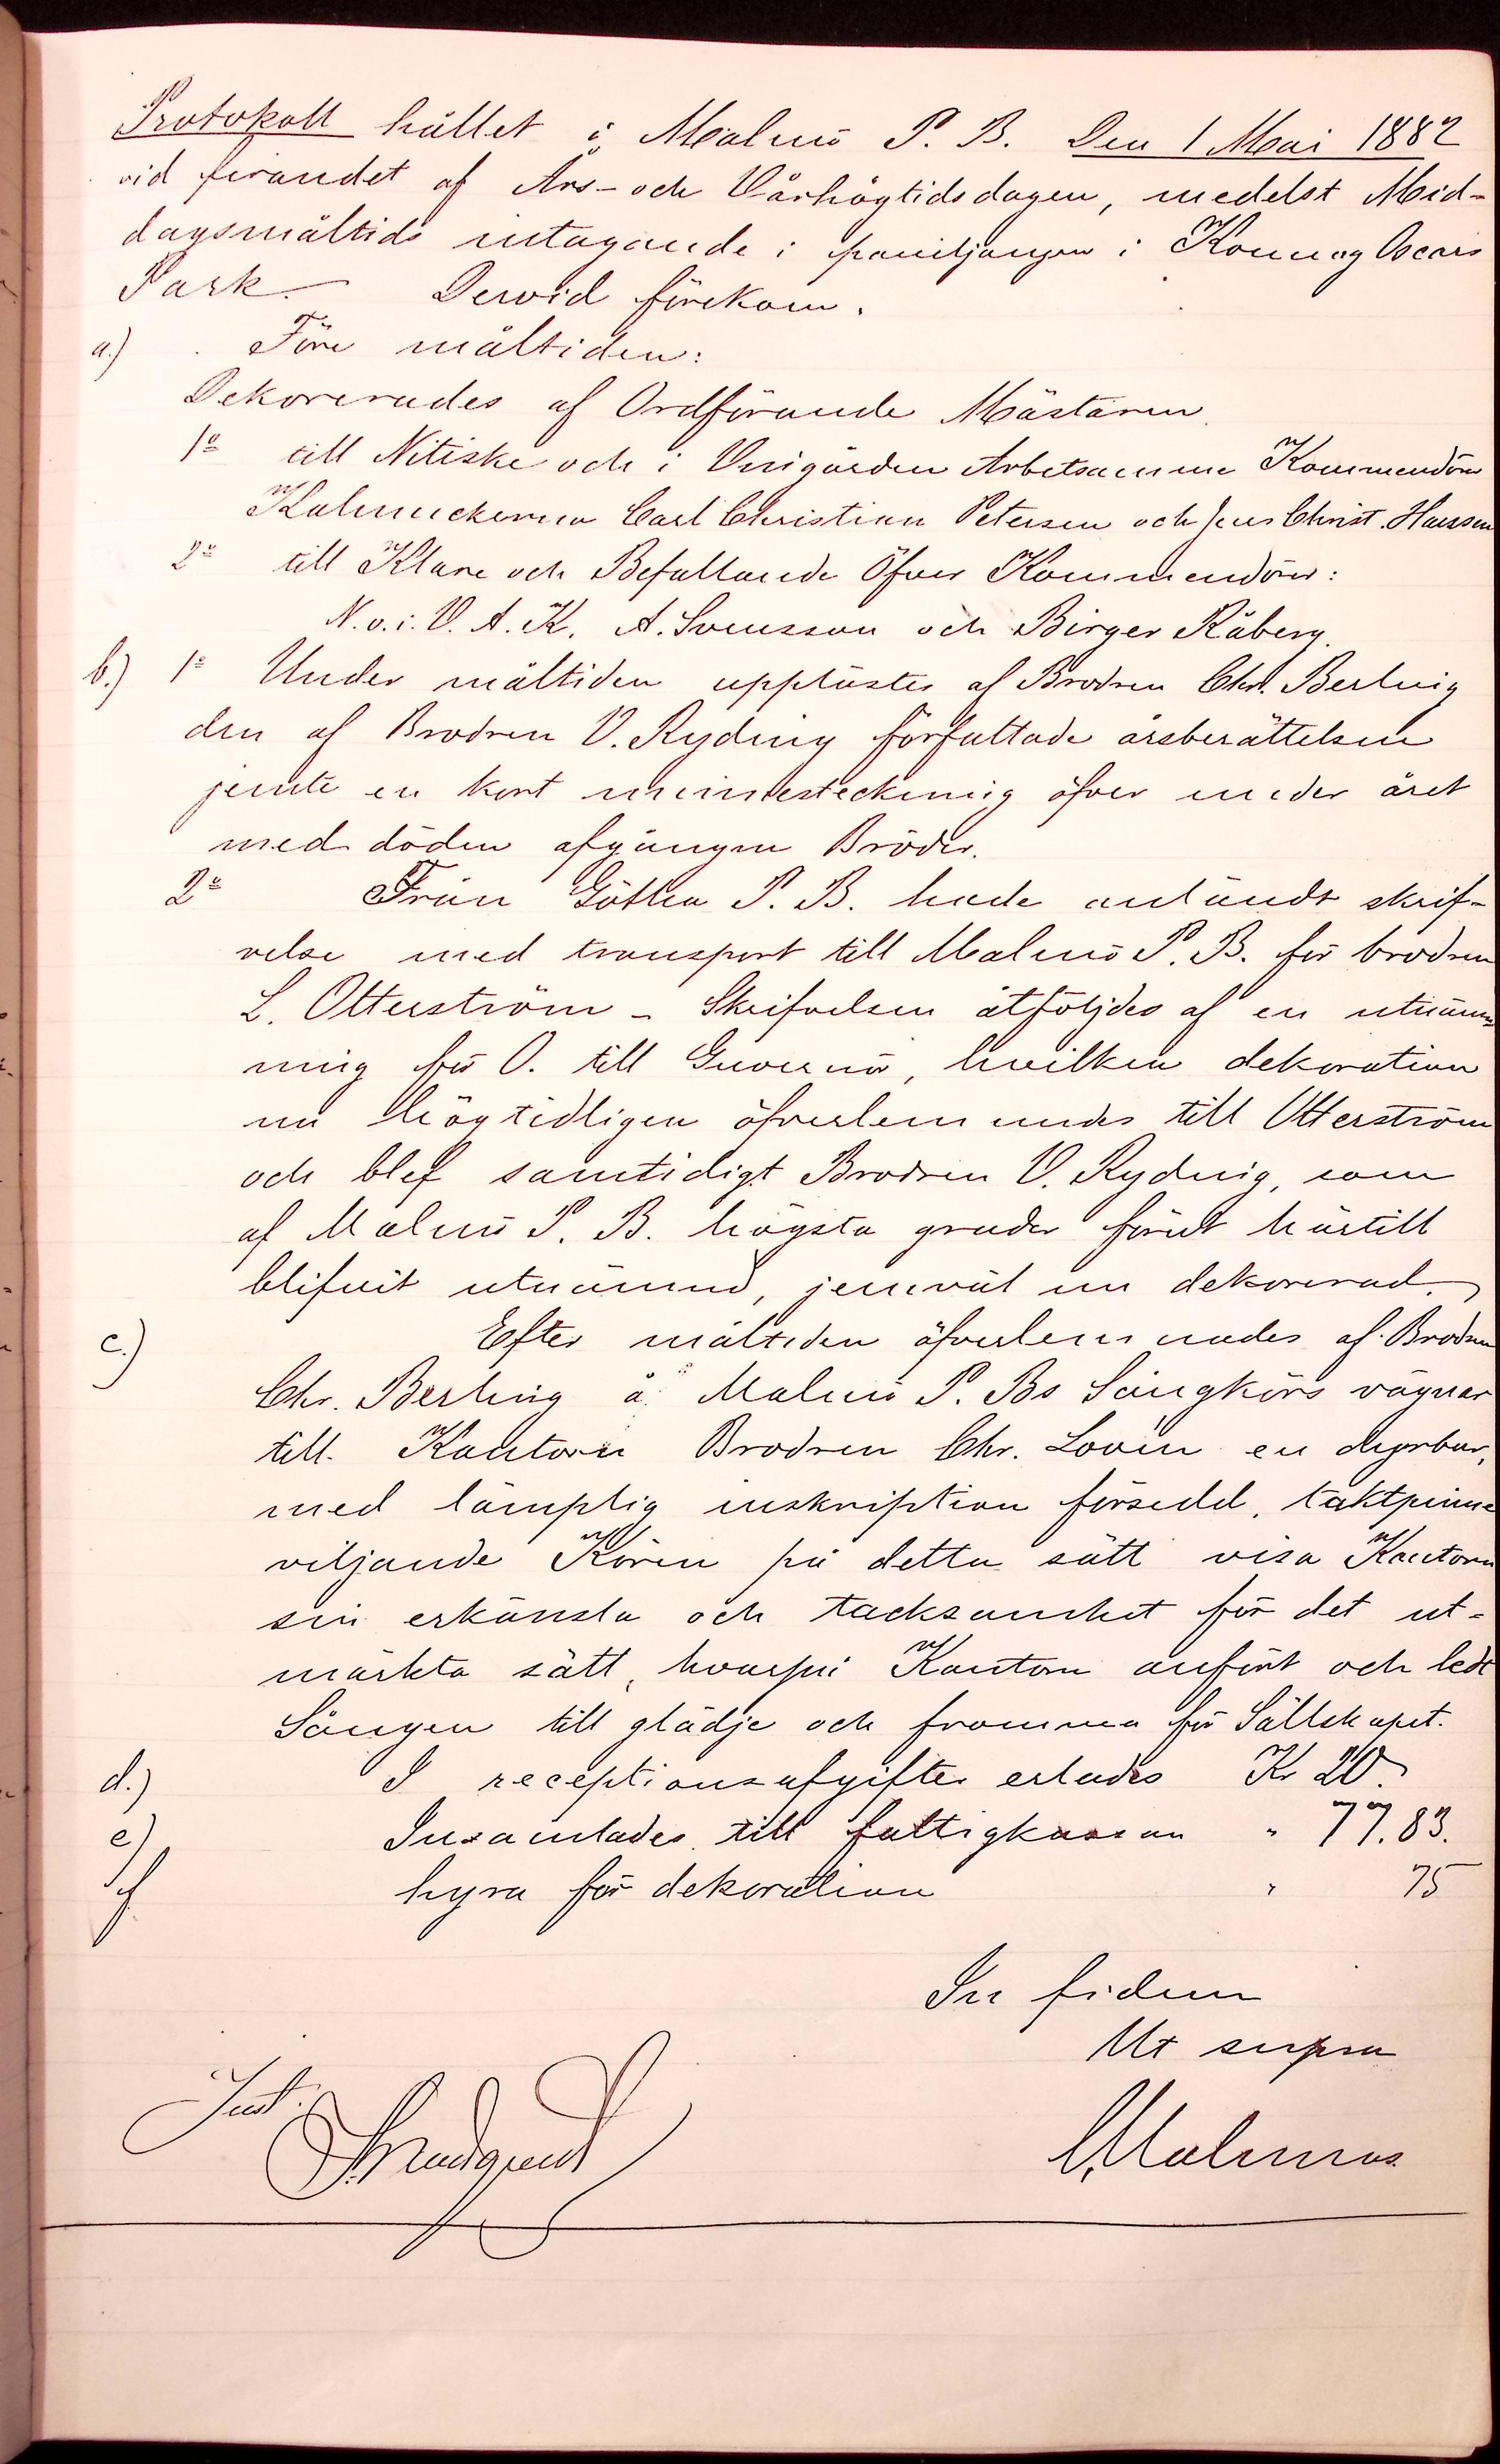 Protokoll hållet i Malmö P. B. Den 1 Mai 1882
vid firandet af Års- och Vårhögtidsdagen, medelst Mid-
dagsmåltids intagande i paviljongen i Konung Oscars
Park. Dervid förekom.
a.) Före måltiden:
Dekorerades af Ordförande Mästaren
1º till Nitiske och i Vinigården Arbetsamme Kommendörer
Kalmuckerna Carl Christian Petersen och Jens Christ. Hansen
2º till Klare och Befallande Öfver Kommendörer:
N. o. i. V. A. K. A. Svensson och Birger Råberg.
b.) 1º Under måltiden upplästes af Brodren Chr. Berling
den af Brodren V. Ryding författade årsberättelsen
jemte en kort minnesteckning öfver under året
med döden afgångne Bröder.
2º Från Götha P. B. hade anländt skrif-
velse med transport till Malmö P. B. för brodren
L. Otterström - Skrifvelsen åtföljdes af en utnäm-
ning för O. till Guvernör, hvilken dekoration
nu högtidligen öfverlemnades till Otterström
och blef samtidigt Brodren V. Ryding, som
af Malmö P. B. högsta grader förut härtill
blifvit utnämnd, jemväl nu dekorerad.
c.) Efter måltiden öfverlemnades af Brodren
Chr. Berling å Malmö P. Bs Sångkörs vägnar
till Kantorn Brodren Chr. Lovén en dyrbar,
med lämplig inskription försedd, taktpinne
viljande Kören på detta sätt visa Kantorn
sin erkänsla och tacksamhet för det ut-
märkta sätt, hvarpå Kantorn anfört och ledt
Sången till glädje och fromma för Sällskapet.
d.) I receptionsafgifter erlades Kr 20
e) Insamlades till fattigkassan " 77.83.
f hyra för dekoration " 75
In fidem
Ut supra
Just.
C. Malmros